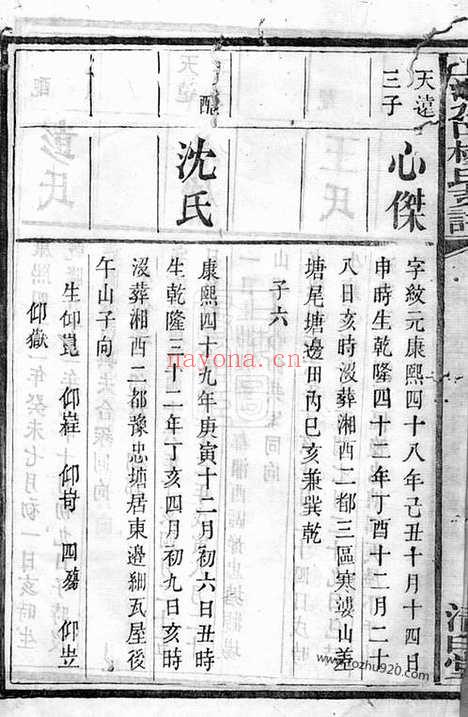 天遠三子
心傑
字紋元康熙四十八年己丑十月十四日
申時生乾隆四十二年丁酉十二月二十
八日亥時沒葬湘西二都三區寒婆山差
塘尾塘邊田內巳亥兼巽乾
子六
配
沈氏
康熙四十九年庚寅十二月初六日丑時
生乾隆三十二年丁亥四月初九日亥時
沒葬湘西二都豫忠塘居東邊細瓦屋後
午山子向
生仰崑 仰崔 仰 四殤 仰
仰嶽
nayona.cn